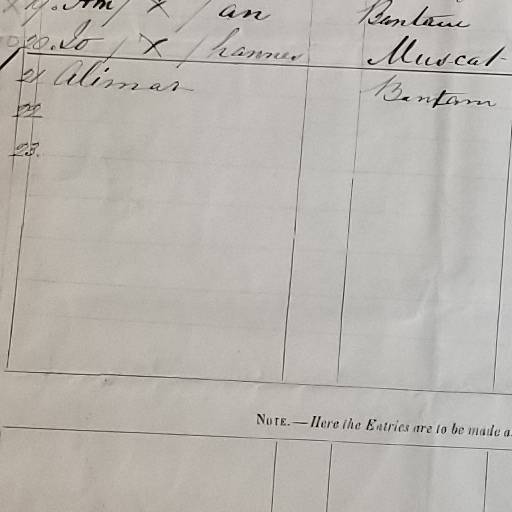 19. Am / X / an Bantam
20. Jo / X / hannes Muscat
21 Alimar Bantam
22
23.
NOTE.—Here the Entries are to be made a